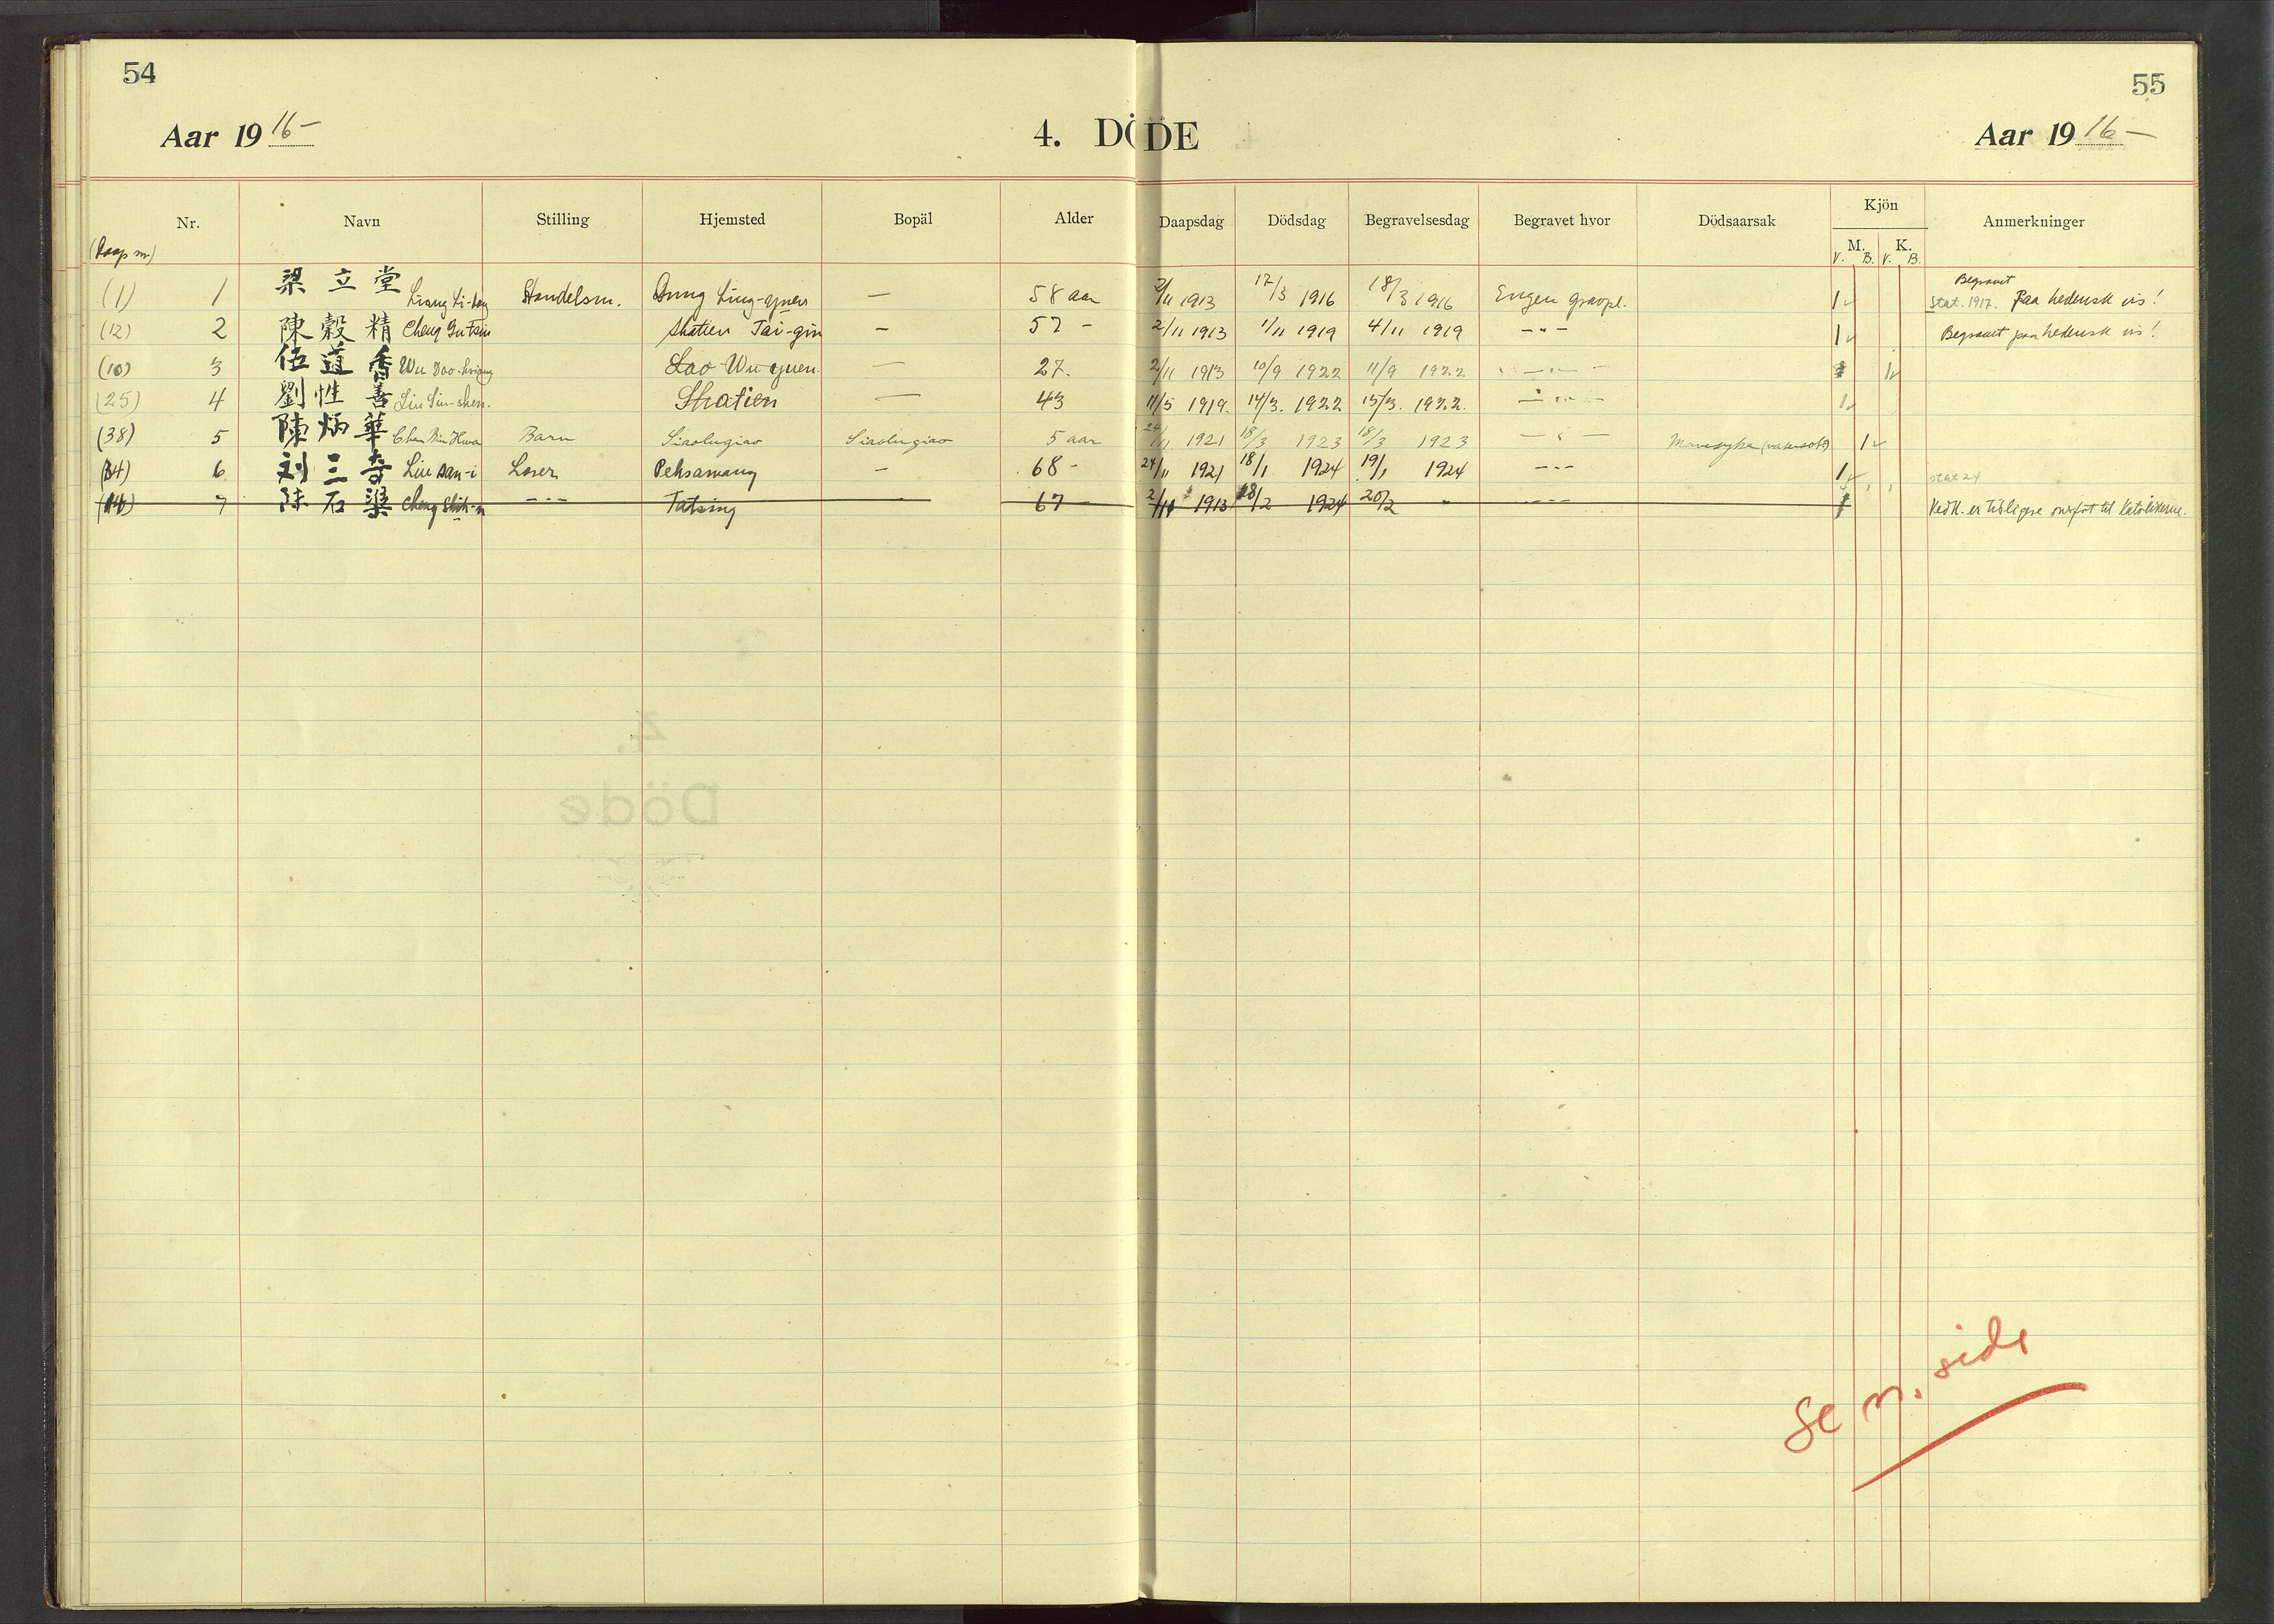 54
55
Aar 19 16-
4. DÖDE
Aar 19 16-
Nr. Navn Stilling Hjemsted Bopäl Alder Daapsdag Dödsdag Begravelsesdag Begravet hvor Dödsaarsak Kjön Anmerkninger
(Daap nr) M. K.
V. B. V. B.
Begravet
(1) 1 梁立堂 Liang Li-tang Handelsm. Ling-yuen — 58 aar 2/11 1913 17/3 1916 18/3 1916 Engen gravpl. 1 stat. 1917. Paa hedensk vis!
(12) 2 陳穀精 Cheng Gu tsin Shatien Tai-gin - 57 - 2/11 1913 1/11 1919 4/11 1919 -"- 1 Begravet paa hedensk vis!
(10) 3 伍道香 Wu Dao-hsiang Lao-Wu-yuen. — 27. 2/11 1913 10/9 1922 11/9 1922 -"- 1
(25) 4 劉性善 Liu Sin-shen. Shatien — 43 11/5 1919. 14/3. 1922 15/3. 1922. -"- 1
(38) 5 陳炳華 Chen Bin Hwa Barn Siaolugiao Siaolugiao 5 aar 24/11 1921 18/3 1923 18/3 1923 -"- 1
(34) 6 刘三奇 Liu San-i Læser Pehsamang - 68 - 24/11 1921 18/1 1924 19/1 1924 -"- 1 stat 24
(14) 7 陳石樑 Cheng Shih- -"- Tatsing 67 2/11 1913 18/2 1924 20/2 " -"- 1 Vedk. er tidligere overført til katolikerne.
4.
Döde
Se n. side